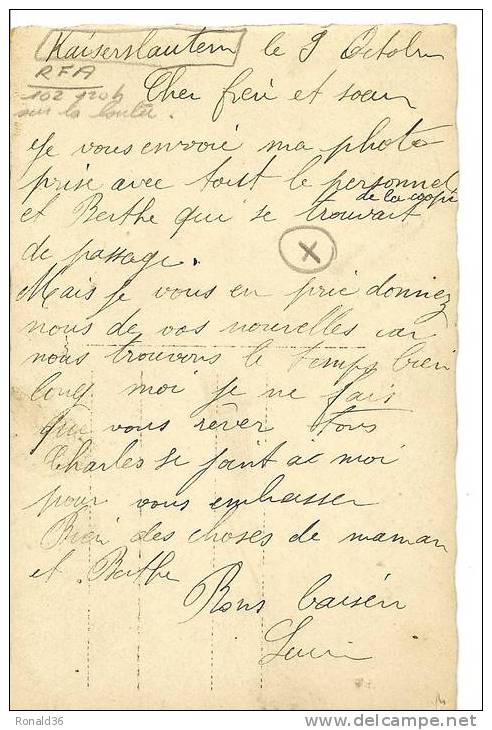 Kaiserslautern le 9 Octobre
RFA
102 120h
sur la Lauter.
Cher frère et soeur
Je vous envoie ma photo
prise avec tout le personnel
de la coopé
et Berthe qui se trouvait
X
de passage.
Mais je vous en prie donniez
nous de vos nouvelles car
nous trouvons le temps bien
long moi je ne fais
que vous rêver tous
Charles se joint a moi
pour vous embrasser
Bien des choses de maman
et Berthe
Bons baisers
Ronald36
delcampe.net